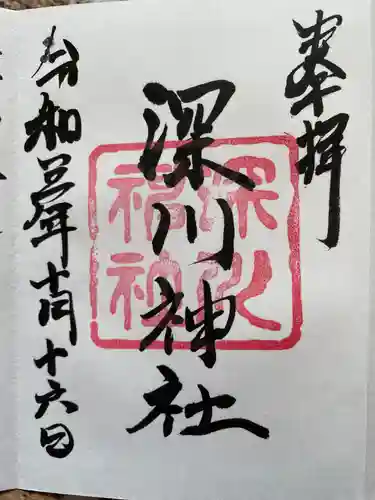 奉拝
深川神社
深川
神社
令和年十月十六日